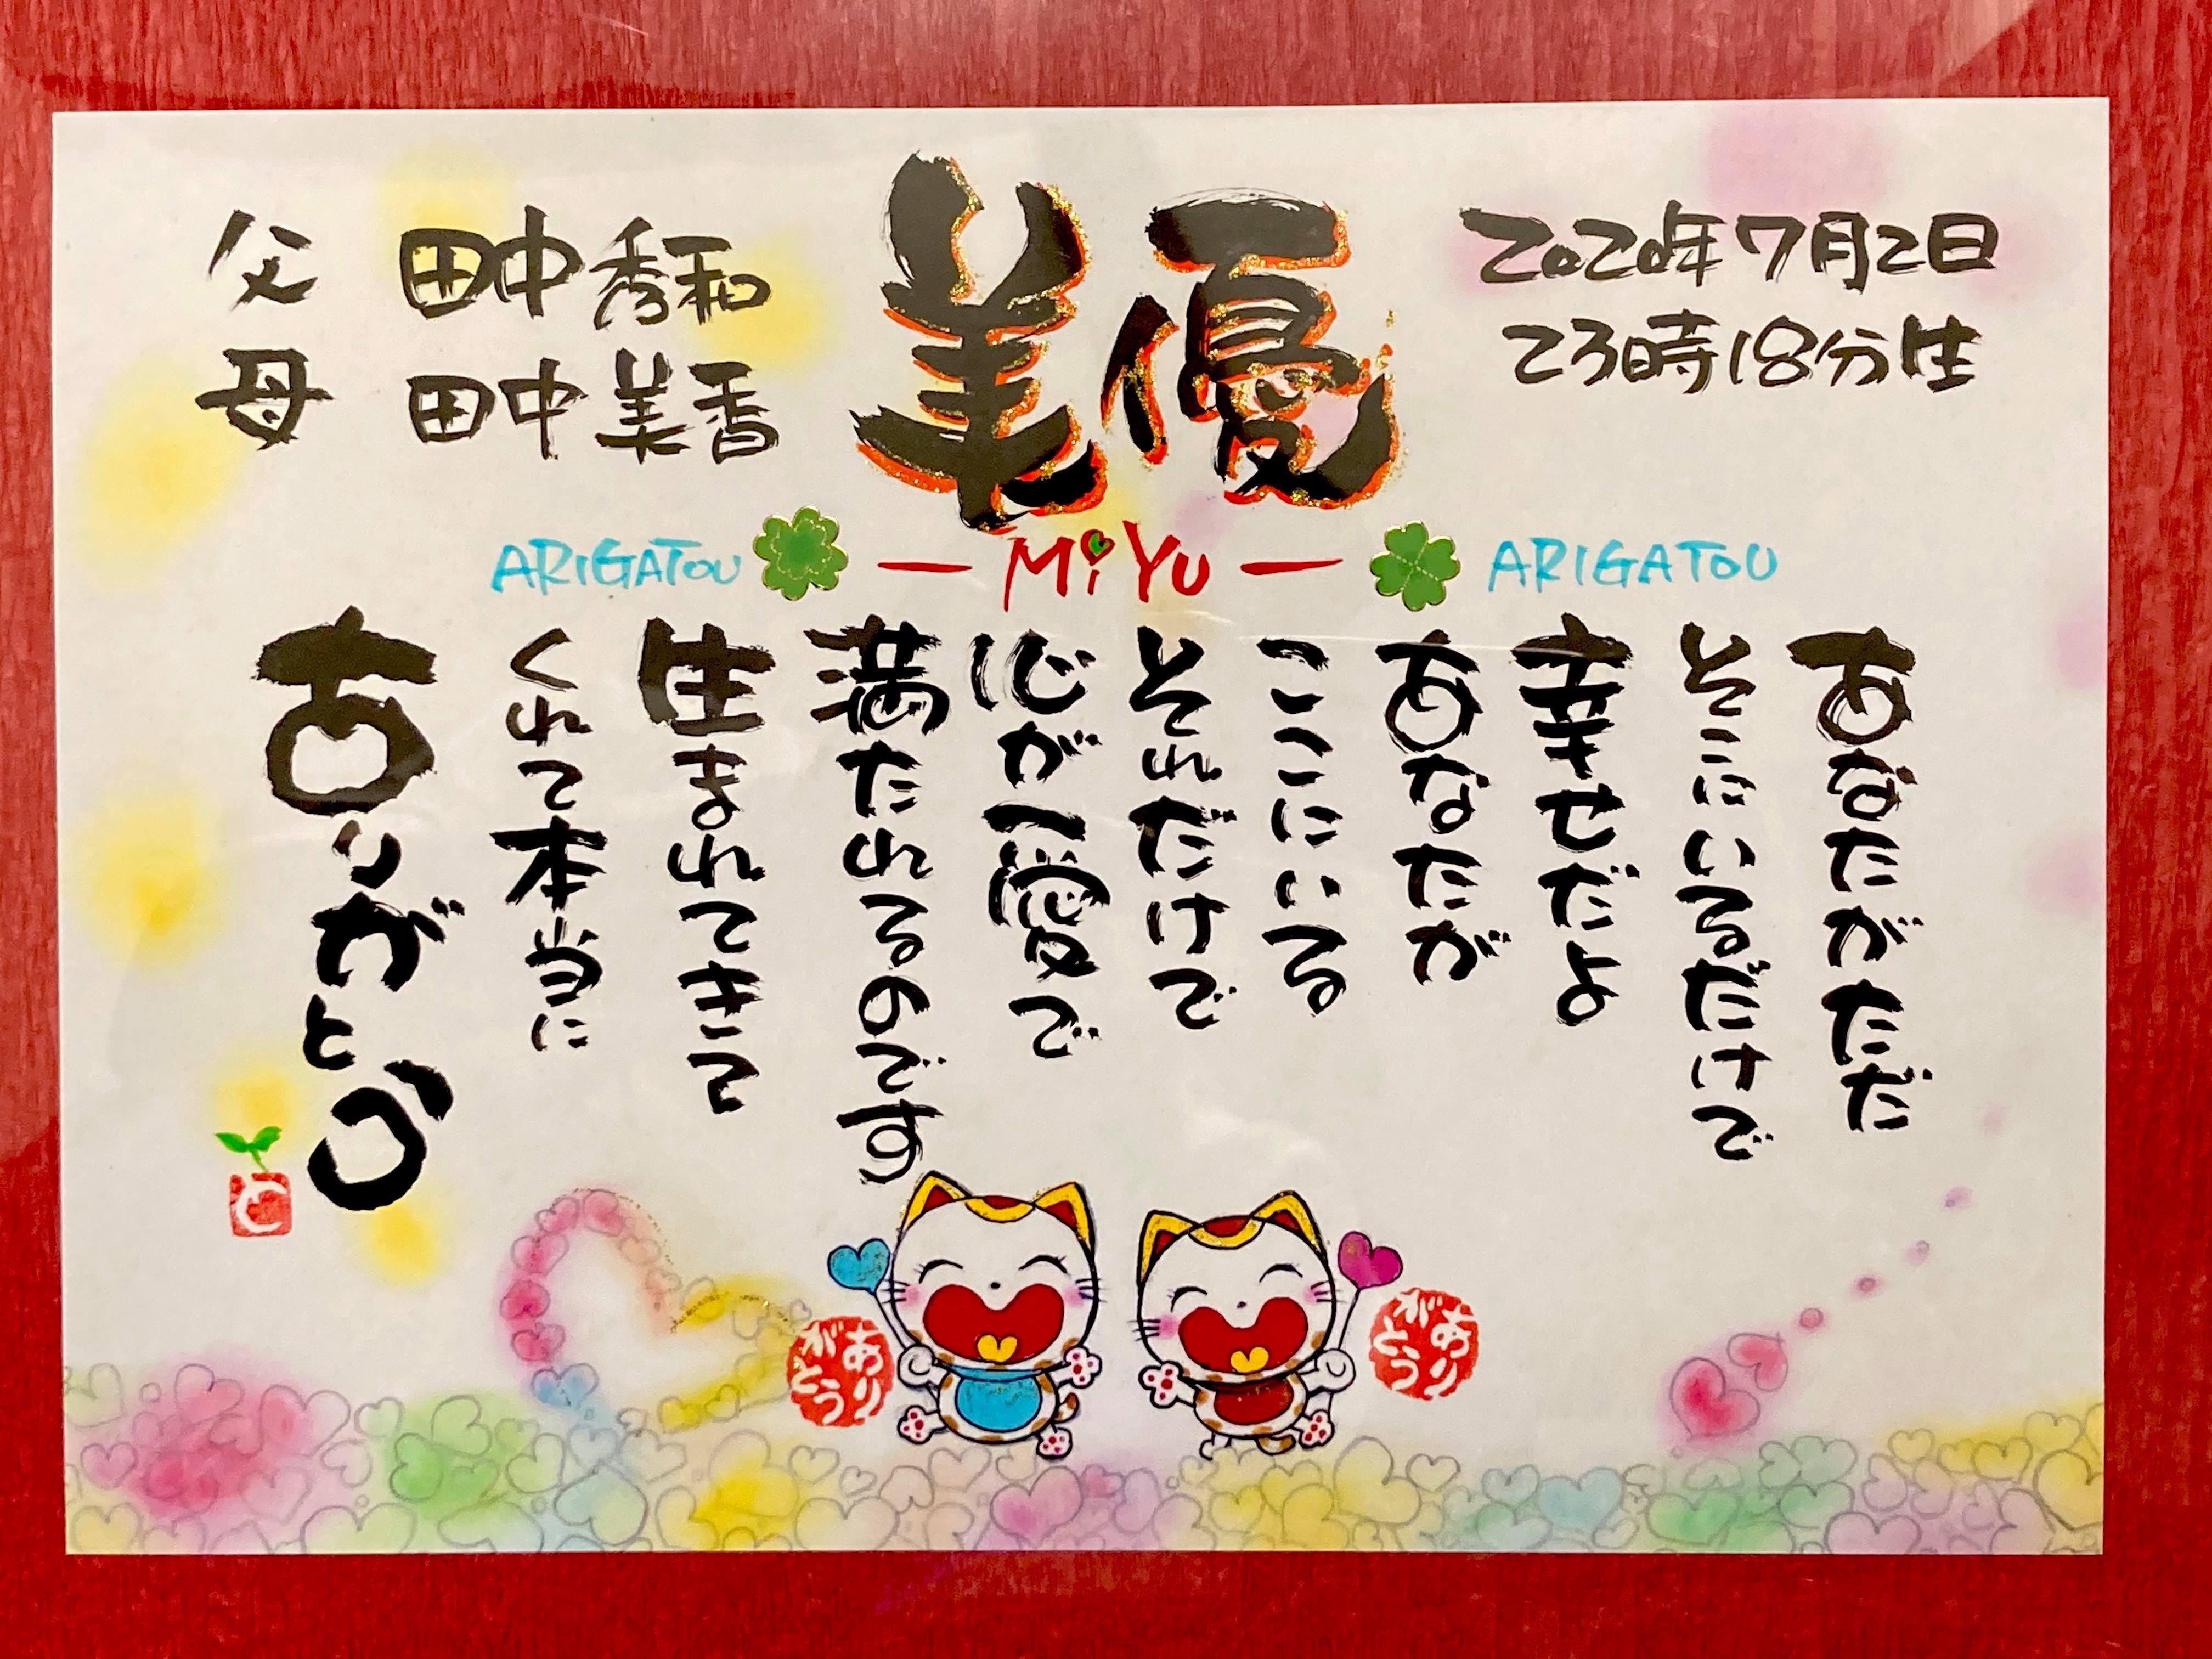 美優
2020年7月2日
23時18分生
父 田中秀和
母 田中美香
ARIGATOU
MiYU
ARIGATOU
あなたがただ
そこにいるだけで
幸せだよ
あなたが
ここにいる
それだけで
心が愛で
満たれるのです
生まれてきて
くれて本当に
ありがとう
と
ありがとう
ありがとう